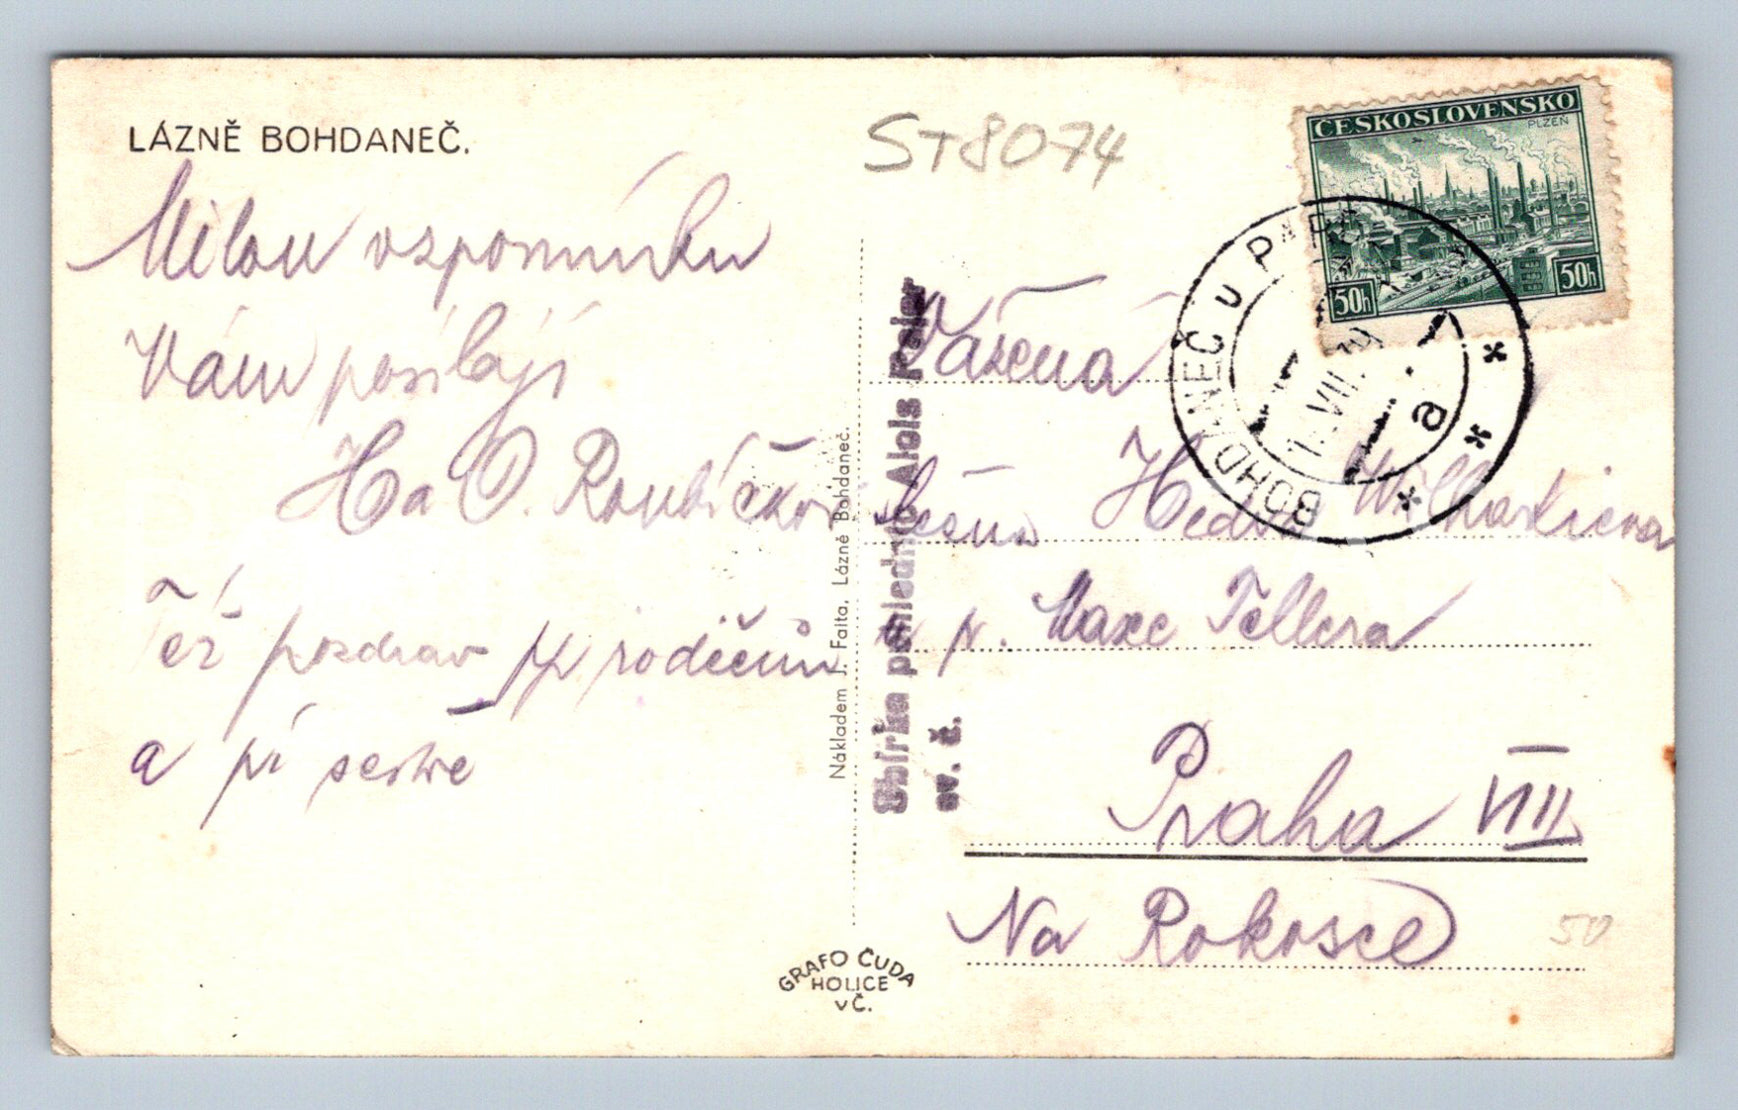 LÁZNĚ BOHDANEČ.
ST8074
ČESKOSLOVENSKO
PLZEŇ
50h
50h
BOHDANEČ u PARD
1. VII. 39
a
Milou vzpomínku
Vám posílají
H a O. Roubíčkovi
Též pozdrav pp rodičům
a pí sestře
Nákladem J. Falta, Lázně Bohdaneč.
Sbírka pohlednic Alois Pejer
ev. č.
Vážená
slečna Hedva
u p. Maxe Tellera
Praha VIII
Na Rokosce
50
GRAFO ČUDA
HOLICE
VČ.